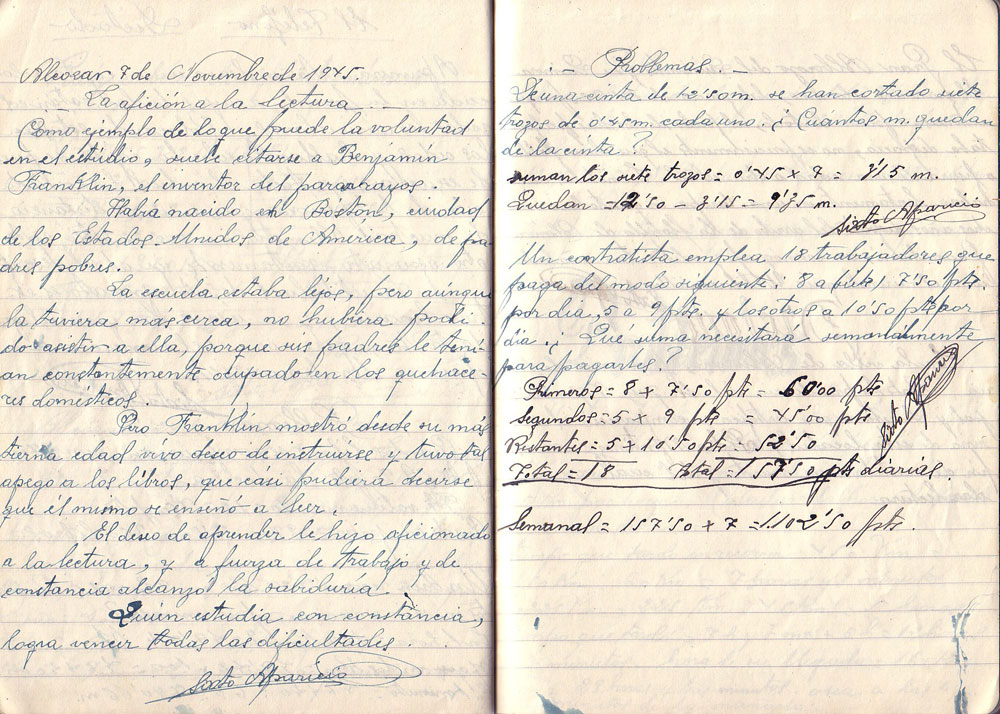 Alcozar 7 de Noviembre de 1945.
La afición a la lectura.
Como ejemplo de lo que puede la voluntad
en el estúdio, suele citarse a Benjamín
Franklín, el inventor del pararrayos.
Había nacido en Bóston, ciudad
de los Estados-Unidos de America, de pa
dres pobres.
La escuela estaba léjos, pero aúnque
la tuviera más cerca, no hubiera podi
do asistir a ella, porque sus padres le tení-
an constantemente ocupado en los quehace-
res domésticos.
Pero Franklín mostró desde su más
tierna edad vívo deseo de instruirse y tuvo tal
apego a los líbros, que cási pudiera decirse
que él mismo se enseñó a leer.
El deseo de aprender le hizo aficionado
a la lectura, y a fuerza de trabajo y de
constancia alcanzó la sabiduría.
Quién estudia con constáncia,
logra vencer todas las dificultades.
Sixto Aparicio
.- Problemas.-
De una cinta de 12'50 m. se han cortado siete
trozos de 0'45 m. cada uno. ¿Cuantos m. quedan
de la cinta?
suman los siete trozos = 0'45 x 7 = 3'15 m.
Quedan = 12'50 - 3'15 = 9'35 m.
Sixto Aparicio
Un contratista emplea 18 trabajadores que
paga del modo siguiente: 8 a 7'50 pts.
por día, 5 a 9 pts. y los otros a 10'50 pts por
día. ¿Qué suma necesitara semanalmente
para pagarles?
Primeros = 8 x 7'50 pts = 60'00 pts
Segundos = 5 x 9 pts = 45'00 pts
Restantes = 5 x 10'50 pts = 52'50
Total = 18 Total = 157'50 pts diárias.
Sixto Aparicio
Semanal = 157'50 x 7 = 1.102'50 pts.